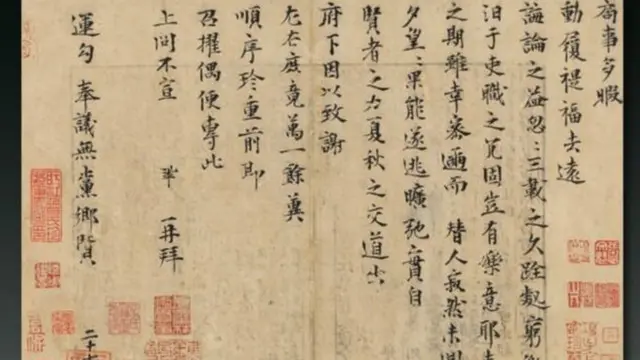 局事多暇
動履禔福去遠
誨論之益忽〻三載之久跧處窮
汩于吏職之冗固豈有樂意耶
之期雖幸密邇而替人寂然未
夕望〻果能遂逃曠弛之實自
賢者之力夏秋之交道出
府下因以致謝
左右庶竟萬一餘冀
順序珍重前即
召擢偶便專此
上問不宣 鞏 再拜
運勾 奉議無黨鄉賢
二十